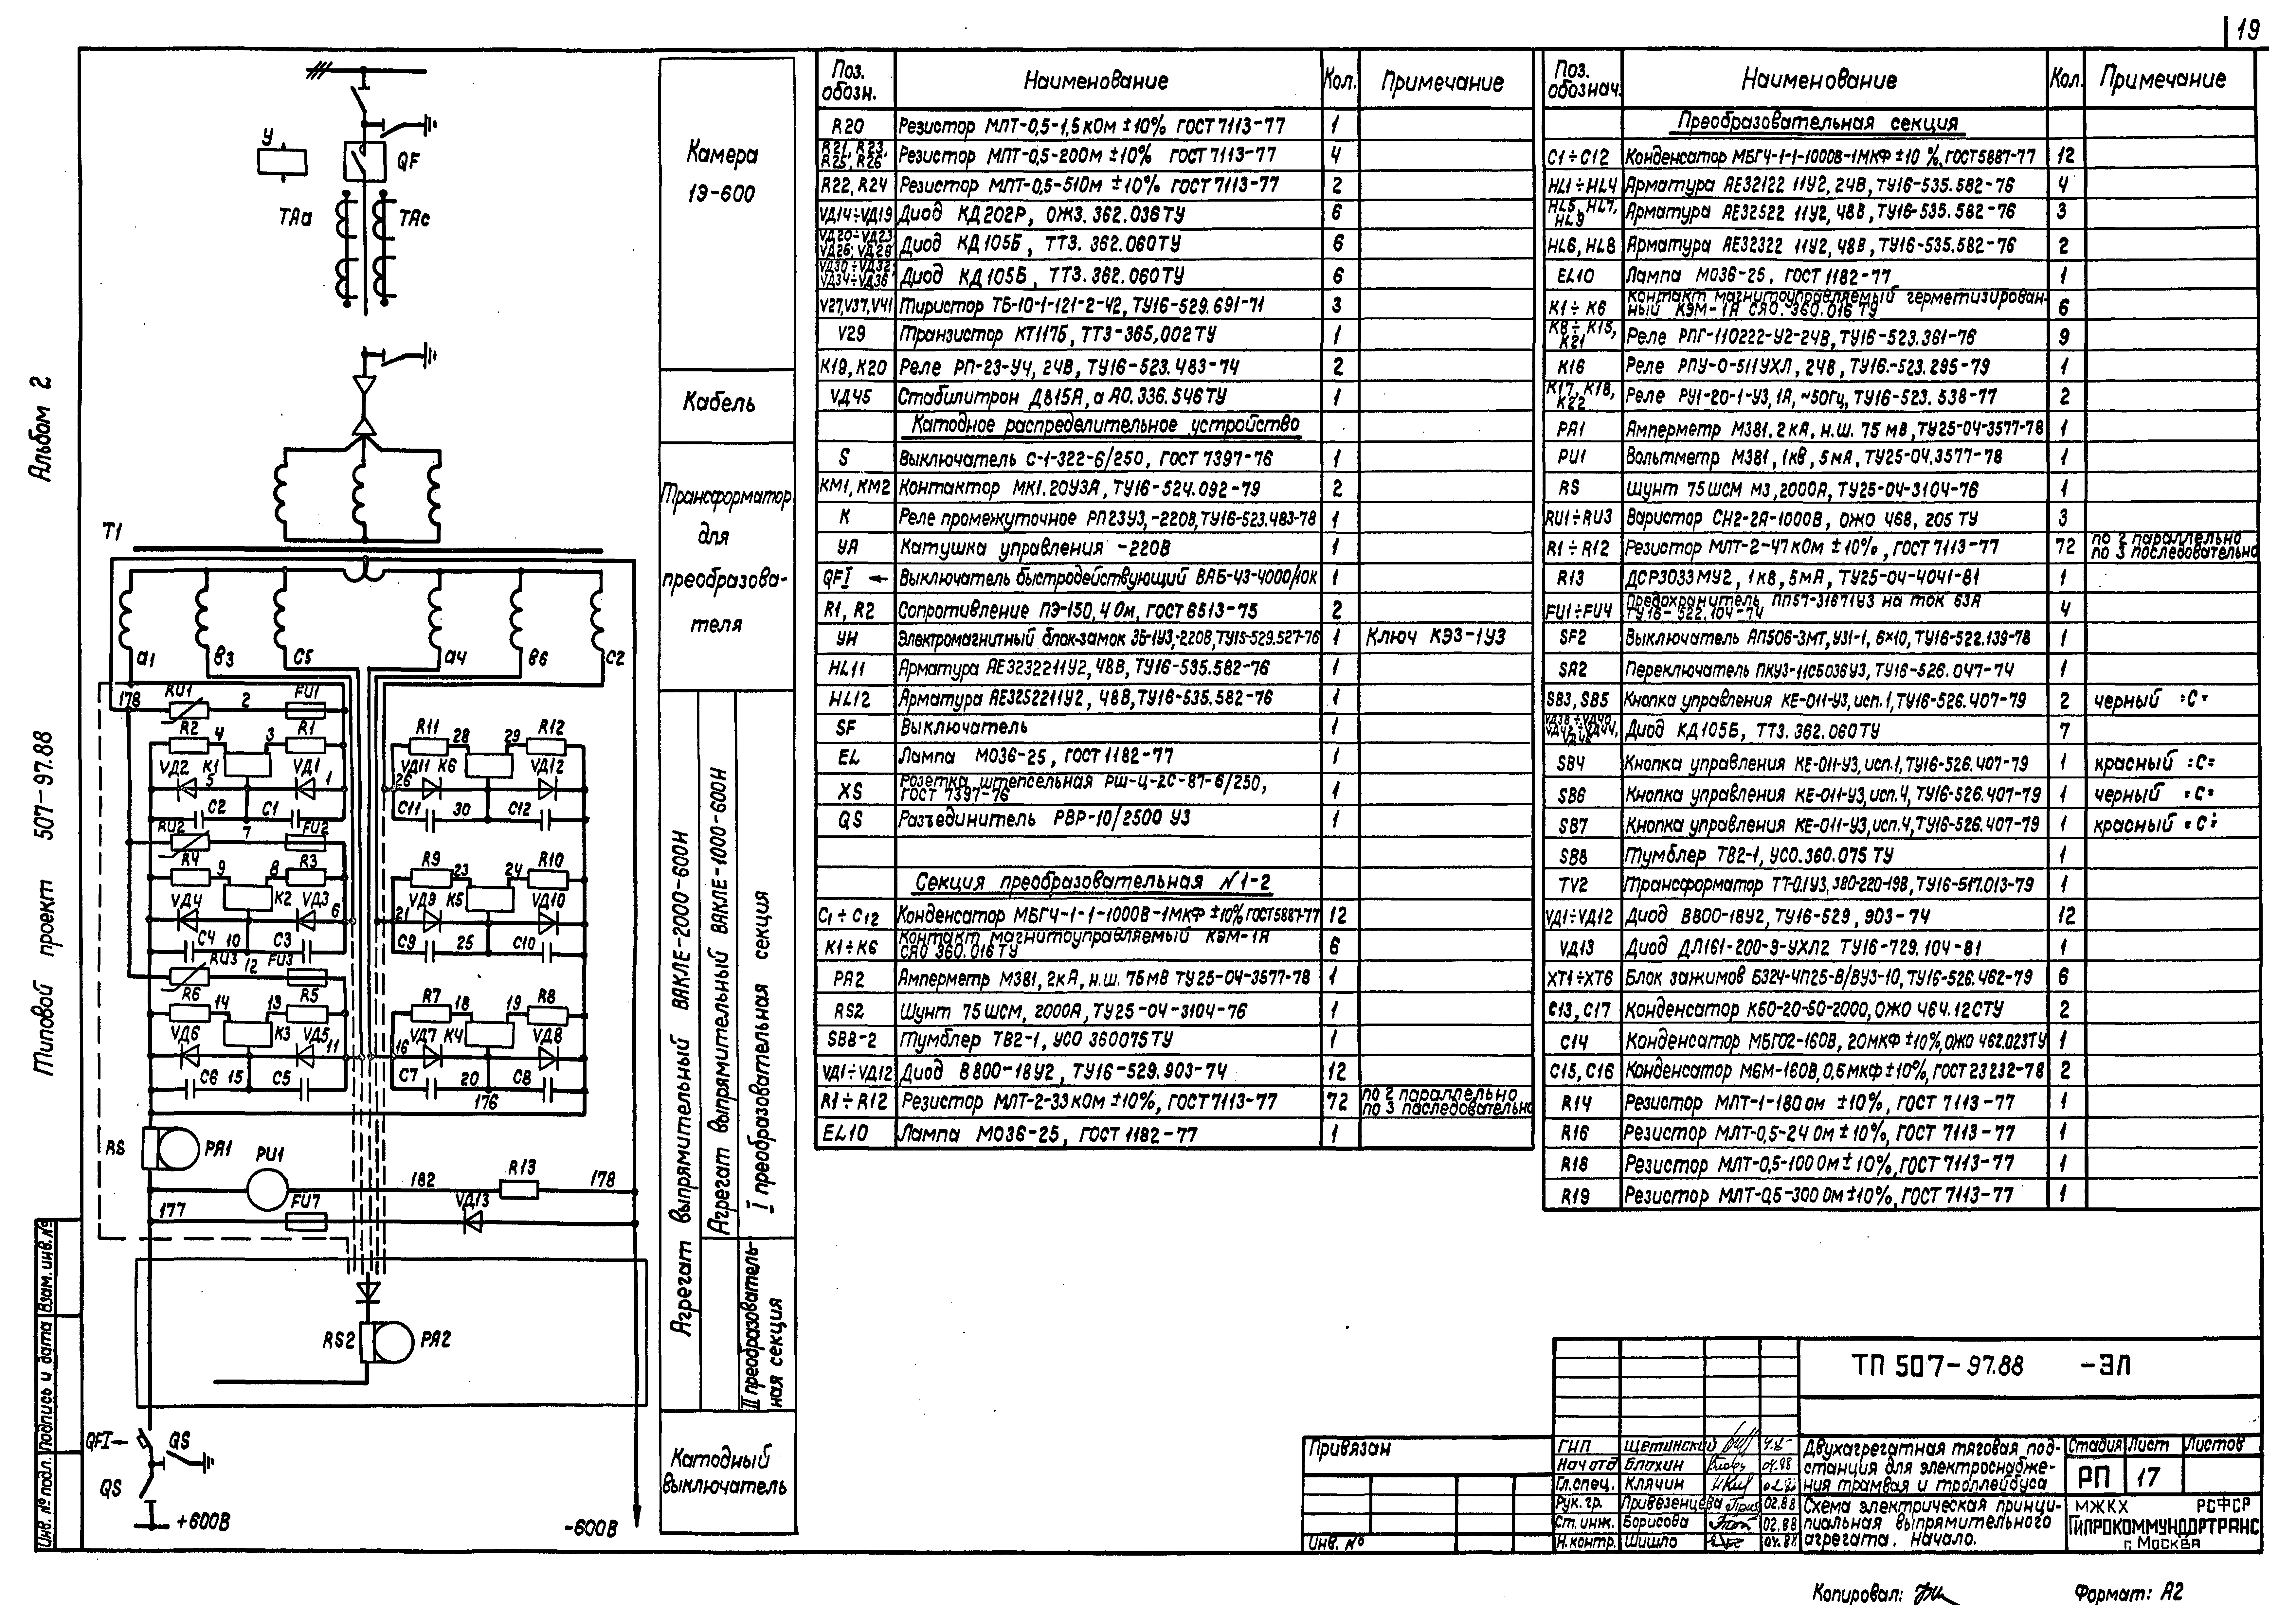 19
Альбом 2
Типовой проект 507-97.88
Инв. № подл. Подпись и дата Взам. инв. №
У
QF
TAa
TAc
T1
a1
в3
c5
a4
в6
c2
178
RU1
2
FU1
R2
4
3
R1
R11
28
29
R12
VД2
K1
VД1
VД11
K6
VД12
5
1
26
C2
C1
C11
30
C12
RU2
7
FU2
R4
9
8
R3
R9
23
24
R10
VД4
K2
VД3
VД9
K5
VД10
6
21
C4
10
C3
C9
25
C10
RU3
12
FU3
R6
14
13
R5
R7
18
19
R8
VД6
K3
VД5
VД7
K4
VД8
11
16
C6
15
C5
C7
20
C8
176
RS
PA1
PU1
182
R13
178
FU7
VД13
177
RS2
PA2
QFI
QS
QS
+600В
-600В
Камера
1Э-600
Кабель
Трансформатор
для
преобразова-
теля
Агрегат выпрямительный ВАКЛЕ-2000-600Н
Агрегат выпрямительный ВАКЛЕ-1000-600Н
I преобразовательная секция
II преобразователь-
ная секция
Катодный
выключатель
Поз. обозн. Наименование Кол. Примечание
R20 Резистор МЛТ-0,5-1,5кОм ±10% ГОСТ7113-77 1
R21, R23, R25, R26 Резистор МЛТ-0,5-200м ±10% ГОСТ7113-77 4
R22, R24 Резистор МЛТ-0,5-510м ±10% ГОСТ7113-77 2
VД14÷VД19 Диод КД202Р, ОЖ3.362.036ТУ 6
VД20÷VД23 VД25; VД26 Диод КД105Б, ТТ3.362.060ТУ 6
VД30÷VД32; VД34÷VД36 Диод КД105Б, ТТ3.362.060ТУ 6
V27,V37,V41 Тиристор ТБ-10-1-121-2-42, ТУ16-529.691-71 3
V29 Транзистор КТ117Б, ТТ3-365,002ТУ 1
К19, К20 Реле РП-23-У4, 24В, ТУ16-523.483-74 2
VД45 Стабилитрон Д815А, аА0.336.546ТУ 1
Катодное распределительное устройство
S Выключатель С-1-322-6/250, ГОСТ 7397-76 1
КМ1, КМ2 Контактор МК1.20У3А, ТУ16-524.092-79 2
К Реле промежуточное РП23У3,-220В,ТУ16-523.483-78 1
УА Катушка управления -220В 1
QFI Выключатель быстродействующий ВАБ-43-4000/10К 1
R1, R2 Сопротивление ПЭ-150, 4 Ом, ГОСТ6513-75 2
УН Электромагнитный блок-замок ЗБ-1У3,-220В,ТУ15-529.527-76 1 Ключ КЭЗ-1У3
HL11 Арматура АЕ3232211У2, 48В, ТУ16-535.582-76 1
HL12 Арматура АЕ3252211У2, 48В,ТУ16-535.582-76 1
SF Выключатель 1
EL Лампа М036-25, ГОСТ1182-77 1
XS Розетка штепсельная РШ-Ц-2С-87-6/250, ГОСТ 7397-76 1
QS Разъединитель РВР-10/2500 У3 1
Секция преобразовательная №1-2
C1÷C12 Конденсатор МБГЧ-1-1-1000В-1МКФ ±10% ГОСТ5887-77 12
К1÷К6 Контакт магнитоуправляемый КЭМ-1А СЯ0 360.016ТУ 6
PA2 Амперметр М381, 2кА, н.ш. 75мВ ТУ25-04-3577-78 1
RS2 Шунт 75ШСМ, 2000А, ТУ25-04-3104-76 1
SB8-2 Тумблер ТВ2-1, УС0 360075ТУ 1
VД1÷VД12 Диод В800-18У2, ТУ16-529.903-74 12
R1÷R12 Резистор МЛТ-2-33кОм ±10%, ГОСТ7113-77 72 по 2 параллельно по 3 последовательно
EL10 Лампа М036-25, ГОСТ1182-77 1
Поз. обознач. Наименование Кол. Примечание
Преобразовательная секция
C1÷C12 Конденсатор МБГЧ-1-1-1000В-1МКФ ±10 %, ГОСТ5887-77 12
HL1÷HL4 Арматура АЕ32122 11У2, 24В, ТУ16-535.582-76 4
HL5, HL7, HL9 Арматура АЕ32522 11У2, 48В, ТУ16-535.582-76 3
HL6, HL8 Арматура АЕ32322 11У2, 48В, ТУ16-535.582-76 2
EL10 Лампа М036-25, ГОСТ1182-77 1
К1÷К6 Контакт магнитоуправляемый герметизирован- ный КЭМ-1А СЯ0.360.016 ТУ 6
К8÷К15, К21 Реле РПГ-110222-У2-24В, ТУ16-523.361-76 9
К16 Реле РПУ-0-511УХЛ, 24В, ТУ16.-523.295-79 1
К17, К18, К22 Реле РУ1-20-1-У3, 1А, ~50Гц, ТУ16-523.538-77 2
PA1 Амперметр М381, 2кА, н.ш. 75 мВ, ТУ25-04-3577-78 1
PU1 Вольтметр М381, 1кВ, 5мА, ТУ25-04.3577-78 1
RS Шунт 75ШСМ М3, 2000А, ТУ25-04-3104-76 1
RU1÷RU3 Варистор СН2-2А-1000В, ОЖ0 468, 205 ТУ 3
R1÷R12 Резистор МЛТ-2-47кОм ±10%, ГОСТ7113-77 72 по 2 параллельно по 3 последовательно
R13 ДСР3033МУ2, 1кВ, 5мА, ТУ25-04-4041-81 1
FU1÷FU4 Предохранитель ПП57-31671У3 на ток 63А ТУ16-522.104-74 4
SF2 Выключатель АП50Б-3МТ, У31-1, 6×10, ТУ16-522.139-78 1
SA2 Переключатель ПКУ3-11С5036У3, ТУ16-526.047-74 1
SB3, SB5 Кнопка управления КЕ-011-У3, исп.1, ТУ16-526.407-79 2 черный "С"
VД38÷VД40, VД42÷VД44, VД46 Диод КД105Б, ТТ3.362.060ТУ 7
SB4 Кнопка управления КЕ-011-У3, исп.1, ТУ16-526.407-79 1 красный "С"
SB6 Кнопка управления КЕ-011-У3, исп.4, ТУ16-526.407-79 1 черный "С"
SB7 Кнопка управления КЕ-011-У3, исп.4, ТУ16-526.407-79 1 красный "С"
SB8 Тумблер ТВ2-1, УС0.360.075 ТУ 1
TV2 Трансформатор ТТ-0,1У3, 380-220-19В, ТУ16-517.013-79 1
VД1÷VД12 Диод В800-18У2, ТУ16-529, 903-74 12
VД13 Диод ДЛ161-200-9-УХЛ2 ТУ16-729.104-81 1
XT1÷XT6 Блок зажимов Б324-4П25-В/ВУ3-10, ТУ16-526.462-79 6
C13, C17 Конденсатор К50-20-50-2000, ОЖ0 464.12СТУ 2
C14 Конденсатор МБГ02-160В, 20МКФ ±10%, ОЖ0 462.023ТУ 1
C15, C16 Конденсатор МБМ-160В, 0,5мкф ±10%, ГОСТ23232-78 2
R14 Резистор МЛТ-1-180м ±10%, ГОСТ 7113-77 1
R16 Резистор МЛТ-0,5-24 Ом ±10%, ГОСТ 7113-77 1
R18 Резистор МЛТ-0,5-100 Ом ±10%, ГОСТ 7113-77 1
R19 Резистор МЛТ-0,5-300 Ом ±10%, ГОСТ 7113-77 1
ТП 507-97.88 -ЭЛ
Привязан
Инв. №
ГИП Щетинский
Нач отд Блохин 04.88
Гл.спец. Клячин
Рук. гр. Привезенцева 02.88
Ст. инж. Борисова 02.88
Н.контр. Шишло 04.88
Двухагрегатная тяговая под-
станция для электроснабже-
ния трамвая и троллейбуса
Схема электрическая принци-
пиальная выпрямительного
агрегата. Начало.
Стадия Лист Листов
РП 17
МЖКХ РСФСР
ГИПРОКОММУНДОРТРАНС
г. Москва
Копировал:
Формат: А2